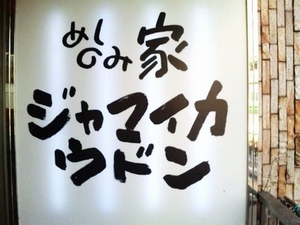 めしみ家
ジャマイカ
ウドン